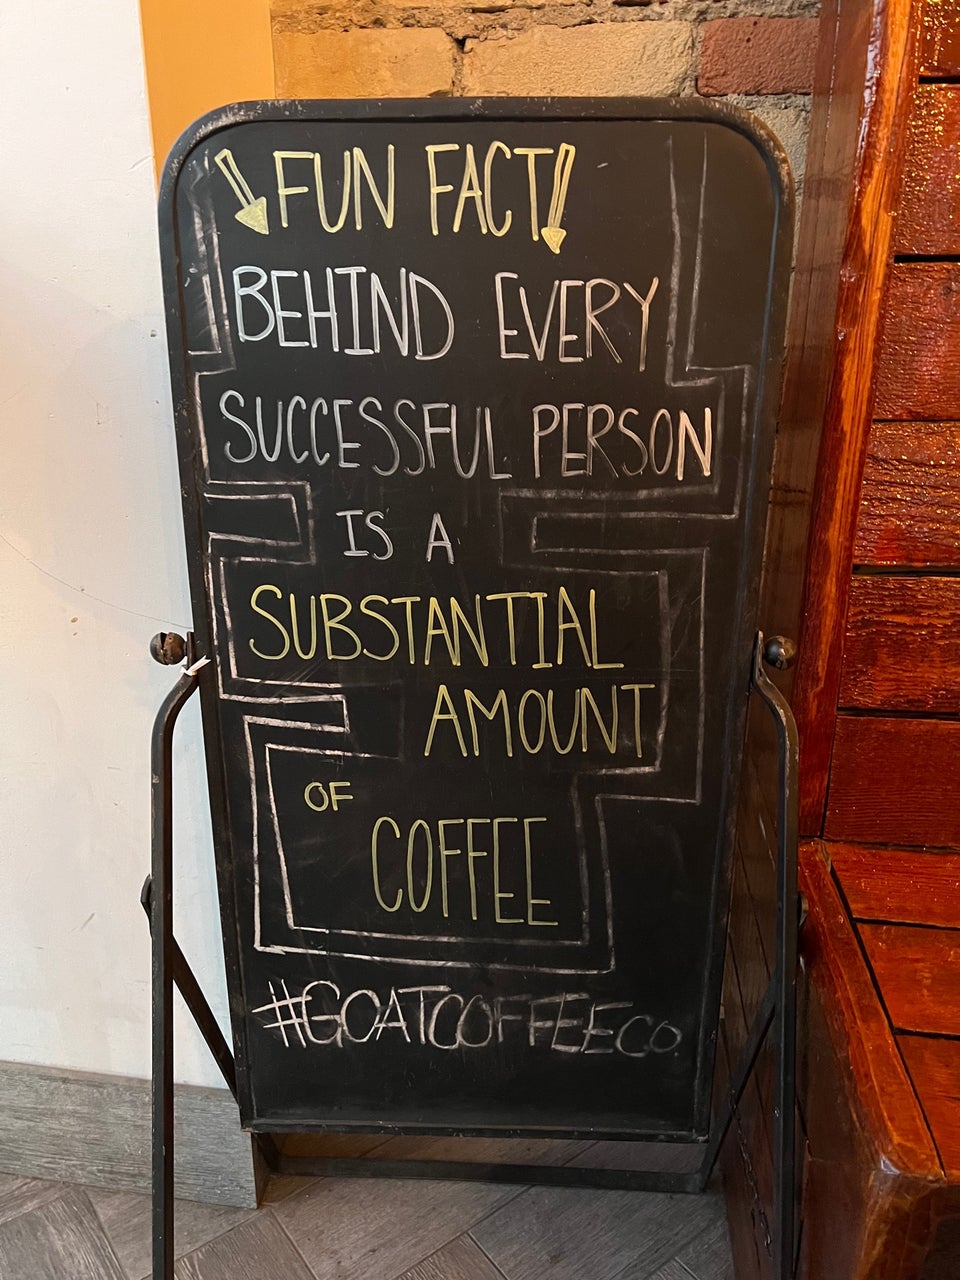 FUN FACT!
BEHIND EVERY
SUCCESSFUL PERSON
IS A
SUBSTANTIAL
AMOUNT
OF
COFFEE
#GOATCOFFEECO